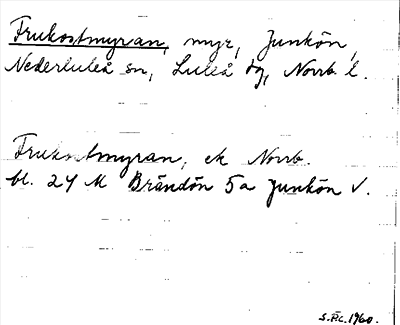 Frukostmyran, myr, Junkön,
Nederluleå sn, Luleå tg, Norrb l.
Frukostmyran, ek Norrb.
bl. 24 M Brändön 5a Junkön V.
1960.